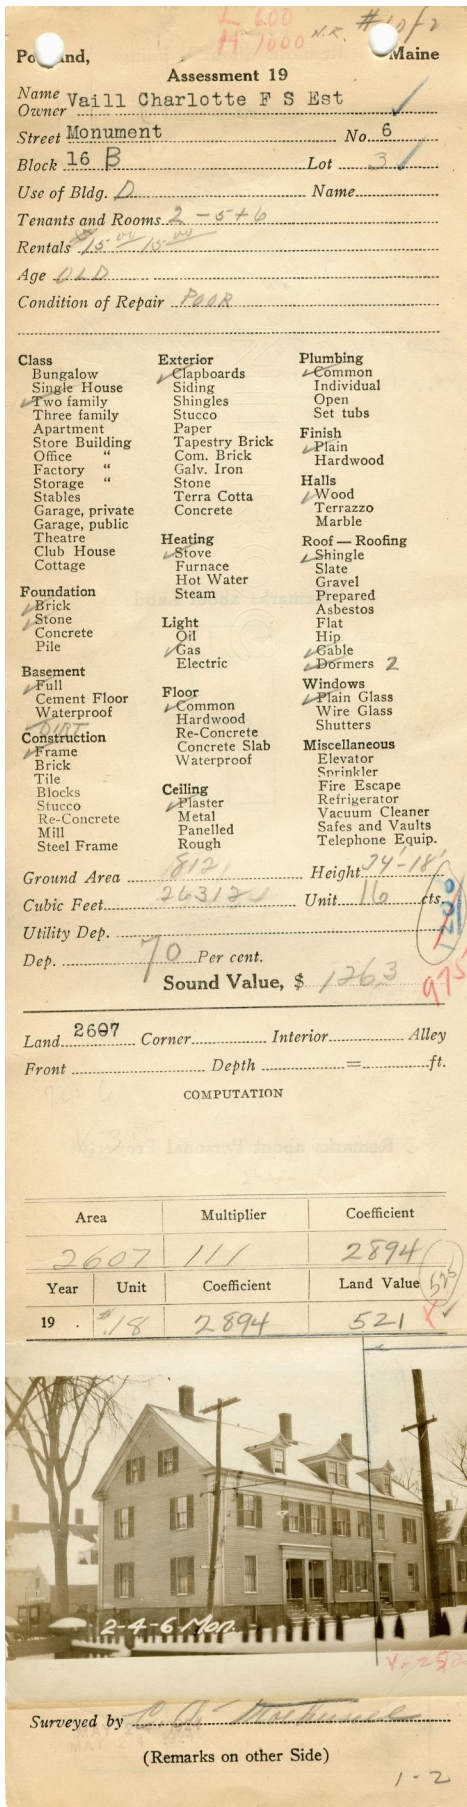 L 600
H 1000 N.R. #1 of 2
Portland, Maine
Assessment 19
Name
Owner Vaill Charlotte F S Est
Street Monument No. 6
Block 16 B Lot 3
Use of Bldg. D Name
Tenants and Rooms 2 - 5 + 6
Rentals $15.00 15.00
Age OLD
Condition of Repair POOR
Class
Bungalow
Single House
✓ Two family
Three family
Apartment
Store Building
Office "
Factory "
Storage "
Stables
Garage, private
Garage, public
Theatre
Club House
Cottage
Foundation
✓ Brick
✓ Stone
Concrete
Pile
Basement
✓ Full
Cement Floor
Waterproof
DIRT
Construction
✓ Frame
Brick
Tile
Blocks
Stucco
Re-Concrete
Mill
Steel Frame
Exterior
✓ Clapboards
Siding
Shingles
Stucco
Paper
Tapestry Brick
Com. Brick
Galv. Iron
Stone
Terra Cotta
Concrete
Heating
✓ Stove
Furnace
Hot Water
Steam
Light
Oil
✓ Gas
Electric
Floor
✓ Common
Hardwood
Re-Concrete
Concrete Slab
Waterproof
Ceiling
✓ Plaster
Metal
Panelled
Rough
Plumbing
✓ Common
Individual
Open
Set tubs
Finish
✓ Plain
Hardwood
Halls
✓ Wood
Terrazzo
Marble
Roof — Roofing
✓ Shingle
Slate
Gravel
Prepared
Asbestos
Flat
Hip
✓ Gable
✓ Dormers 2
Windows
✓ Plain Glass
Wire Glass
Shutters
Miscellaneous
Elevator
Sprinkler
Fire Escape
Refrigerator
Vacuum Cleaner
Safes and Vaults
Telephone Equip.
Ground Area 812 Height 24'-18'
Cubic Feet 26312 Unit 16 cts.
Utility Dep.
Dep. 70 Per cent.
Sound Value, $ 1263
975
Land 2607 Corner Interior Alley
Front Depth = ft.
COMPUTATION
Area Multiplier Coefficient
2607 111 2894
Year Unit Coefficient Land Value 525
19 . $.18 2894 521
2-4-6 Mon.
Surveyed by
(Remarks on other Side)
1-2